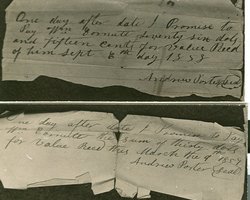 One day after date I Promise to
Pay Wm Cornute Seventy six dols
and fifteen Cents for Value Recd
of him Sept 8th day 1858
Andrew Porter Seal
One day after date I Promise to Pay
Wm Cornutte the Sum of thirty dols
for Value Recd this March the 9th 1858
Andrew Porter Seal